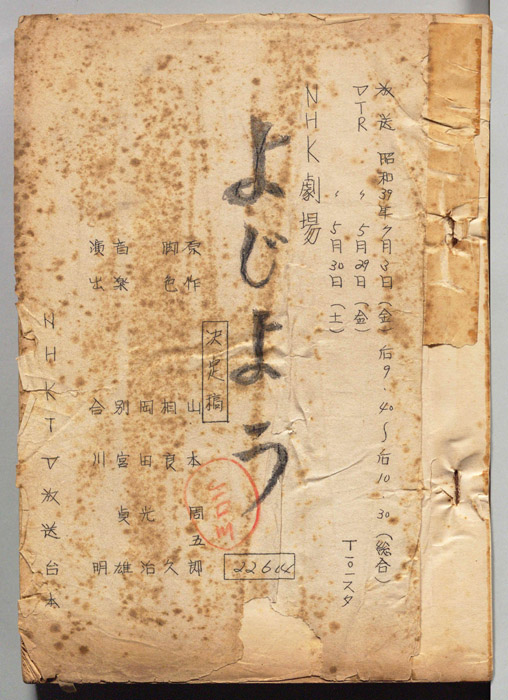 放送 昭和39年7月3日(金)后9・40〜后10・30(総合)
VTR 〃 5月29日(金)
〃 5月30日(土)
T-101スタ
NHK劇場
よじよう
決定稿
原作 山本周五郎
脚色 相良 久
岡田光治
音楽 別宮貞雄
演出 合川 明
NHKTV放送台本